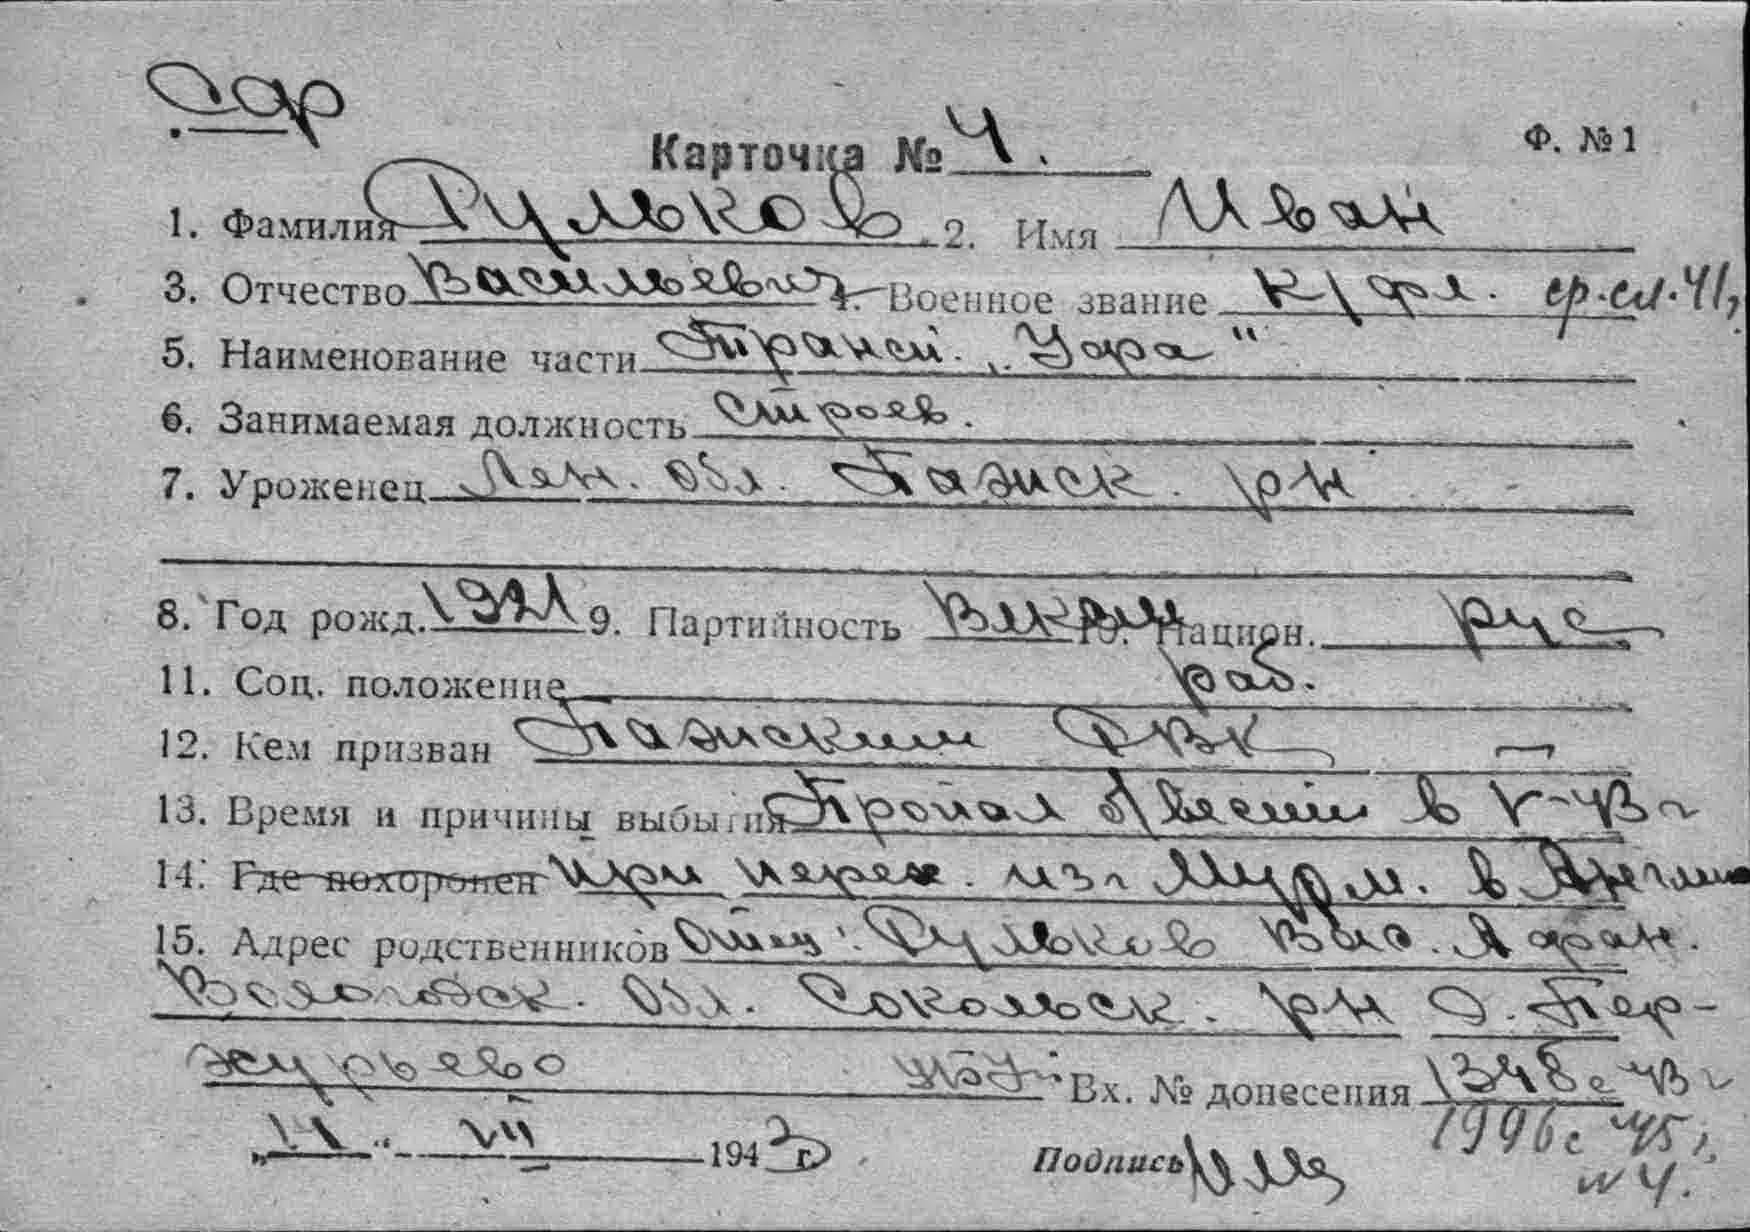 Сдр
Карточка № 4. Ф. № 1
1. Фамилия Рульков 2. Имя Иван
3. Отчество Васильевич 4. Военное звание к/фл. ср.сл.41,
5. Наименование части Трансп. „Уфра"
6. Занимаемая должность строев.
7. Уроженец Лен. обл. Пажск. рн
8. Год рожд. 1921 9. Партийность Влксм 10. Национ. рус
11. Соц. положение раб.
12. Кем призван Пажским РВК
13. Время и причины выбытия Пропал б/вести в V-43 г
14. Где похоронен при перех. из г Мурм. в Англию
15. Адрес родственников Отец: Рульков Вас. Афан.
Вологодск. обл. Сокольск. рн д. Пер-
хурьево Вх. № донесения 1348с 43 г
„11" VII 1943 г. Подпись 1996с 45 г,
№ 4.